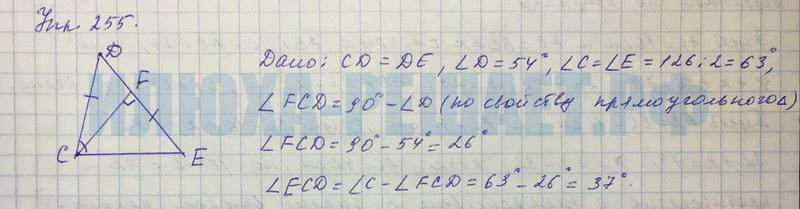 Упр. 255.
D
F
C
E
Дано: CD = DE, ∠D = 54°, ∠C = ∠E = 126 : 2 = 63°,
∠FCD = 90° - ∠D (по свойству прямоугольного △)
∠FCD = 90° - 54° = 26°
∠ECD = ∠C - ∠FCD = 63° - 26° = 37°.